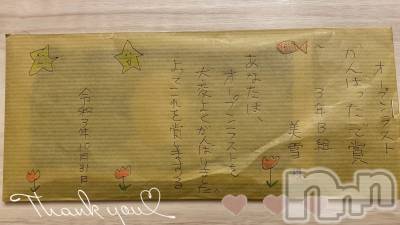 オープンラスト
がんばったで賞
3年B組
美雪
あなたは、
オープンラストを
大変よくがんばりました。
よってこれを賞しまする
令和3年10月31日
Thank you